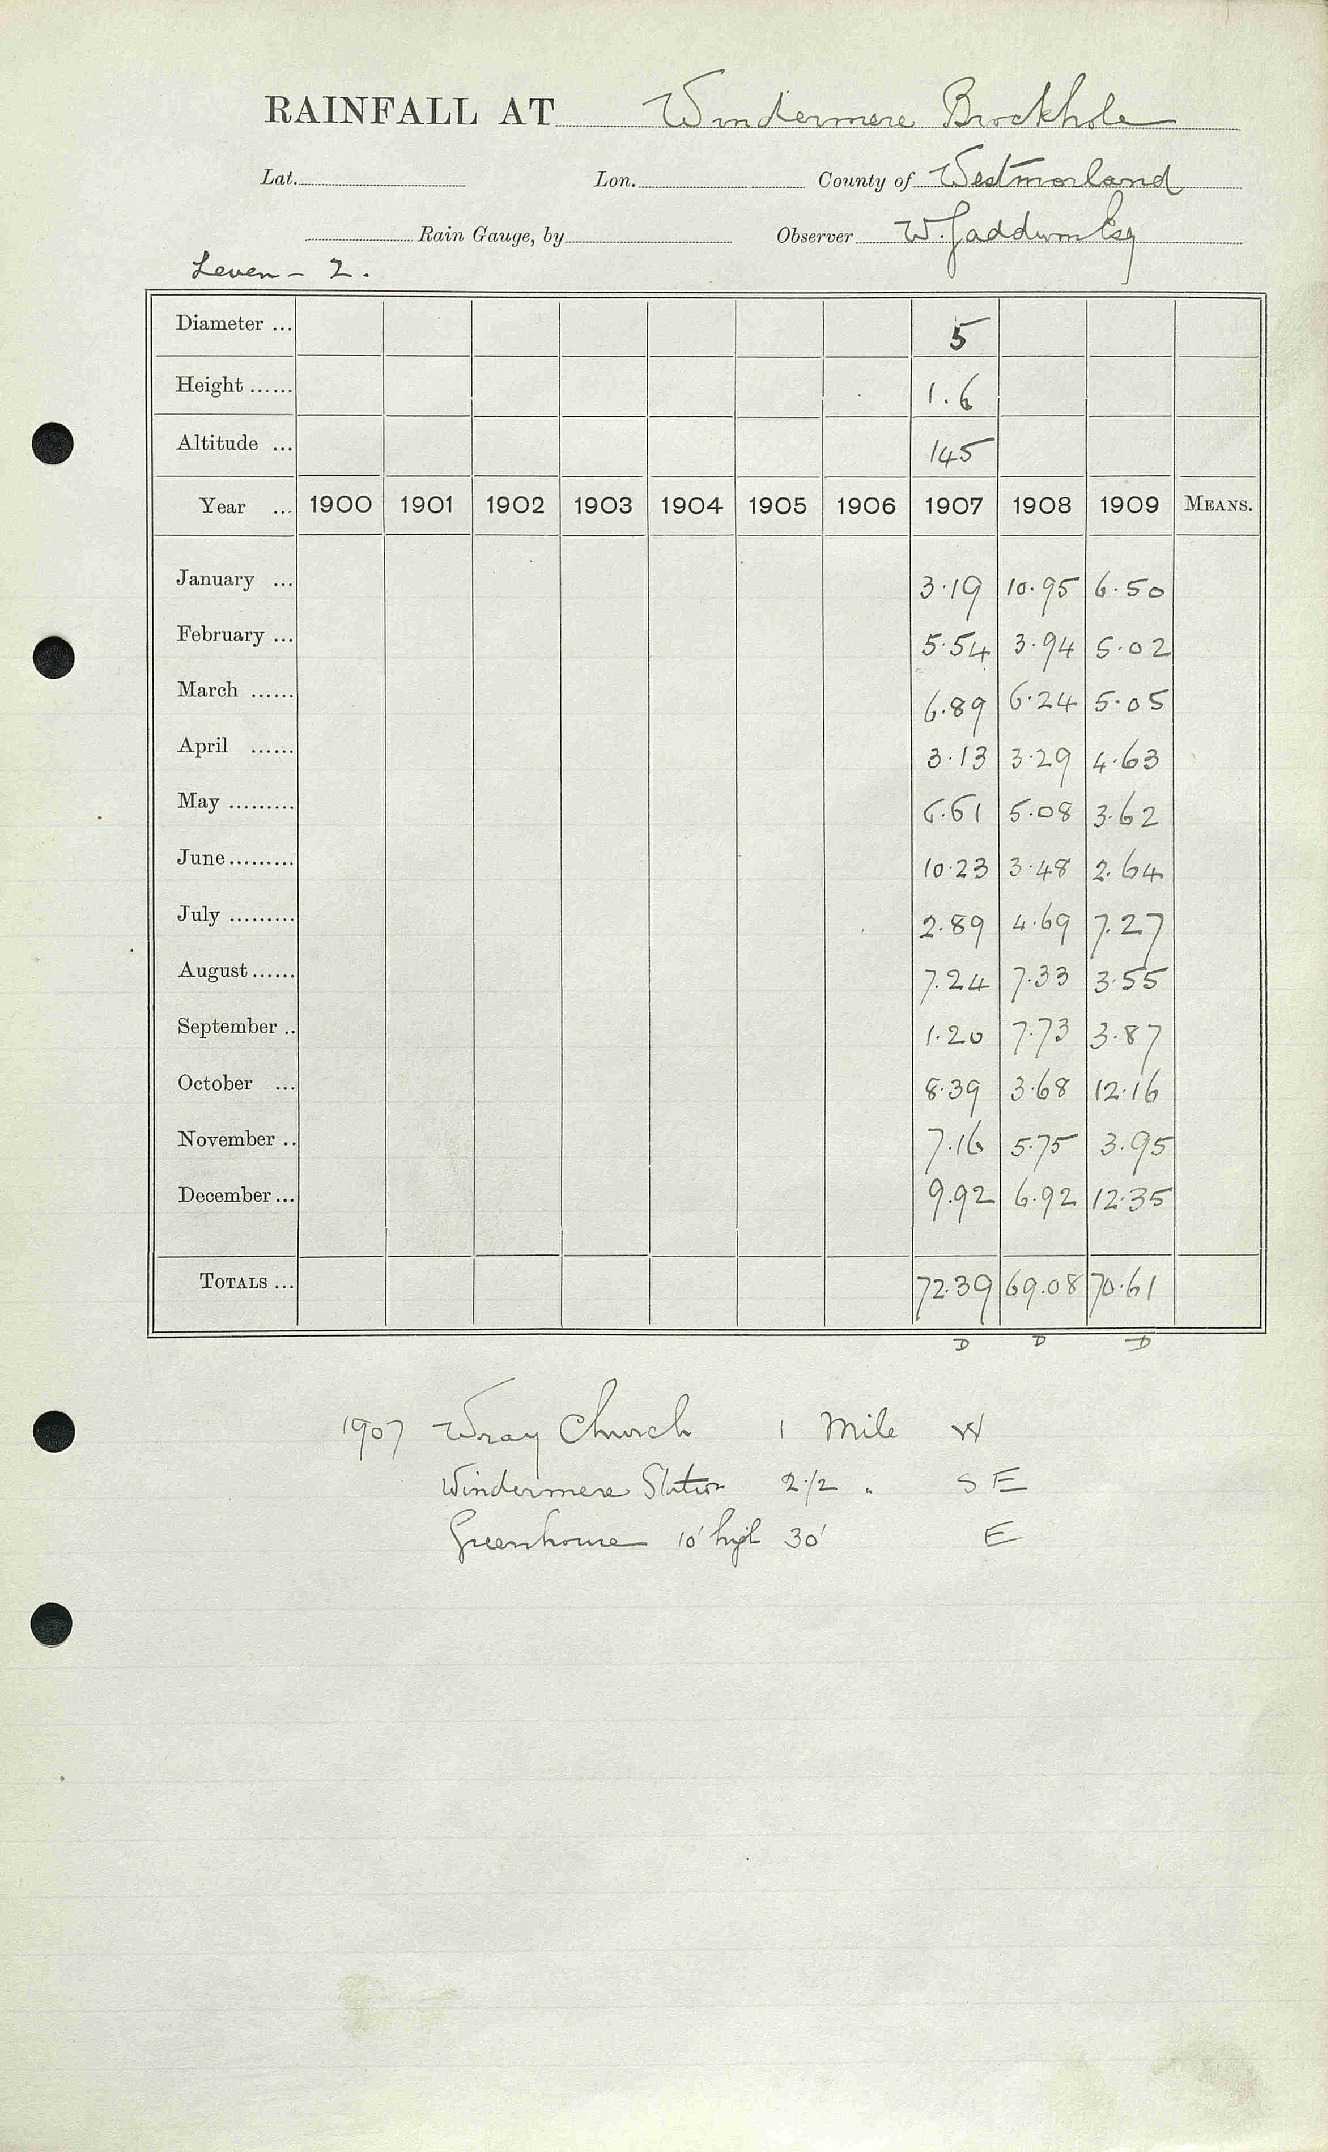 RAINFALL AT Windermere Brockhole
Lat. Lon. County of Westmorland
Rain Gauge, by Observer W. Gaddum Esq
Leven - 2.
Diameter ... 5
Height ...... 1.6
Altitude ... 145
Year ... 1900 1901 1902 1903 1904 1905 1906 1907 1908 1909 MEANS.
January ... 3.19 10.95 6.50
February ... 5.54 3.94 5.02
March ...... 6.89 6.24 5.05
April ...... 3.13 3.29 4.63
May ......... 6.61 5.08 3.62
June ......... 10.23 3.48 2.64
July ......... 2.89 4.69 7.27
August ...... 7.24 7.33 3.55
September .. 1.20 7.73 3.87
October ... 8.39 3.68 12.16
November .. 7.16 5.75 3.95
December ... 9.92 6.92 12.35
TOTALS ... 72.39 69.08 70.61
D D D
1907 Wray Church 1 Mile W
Windermere Station 2 1/2 " S E
Greenhouse 10' high 30' E